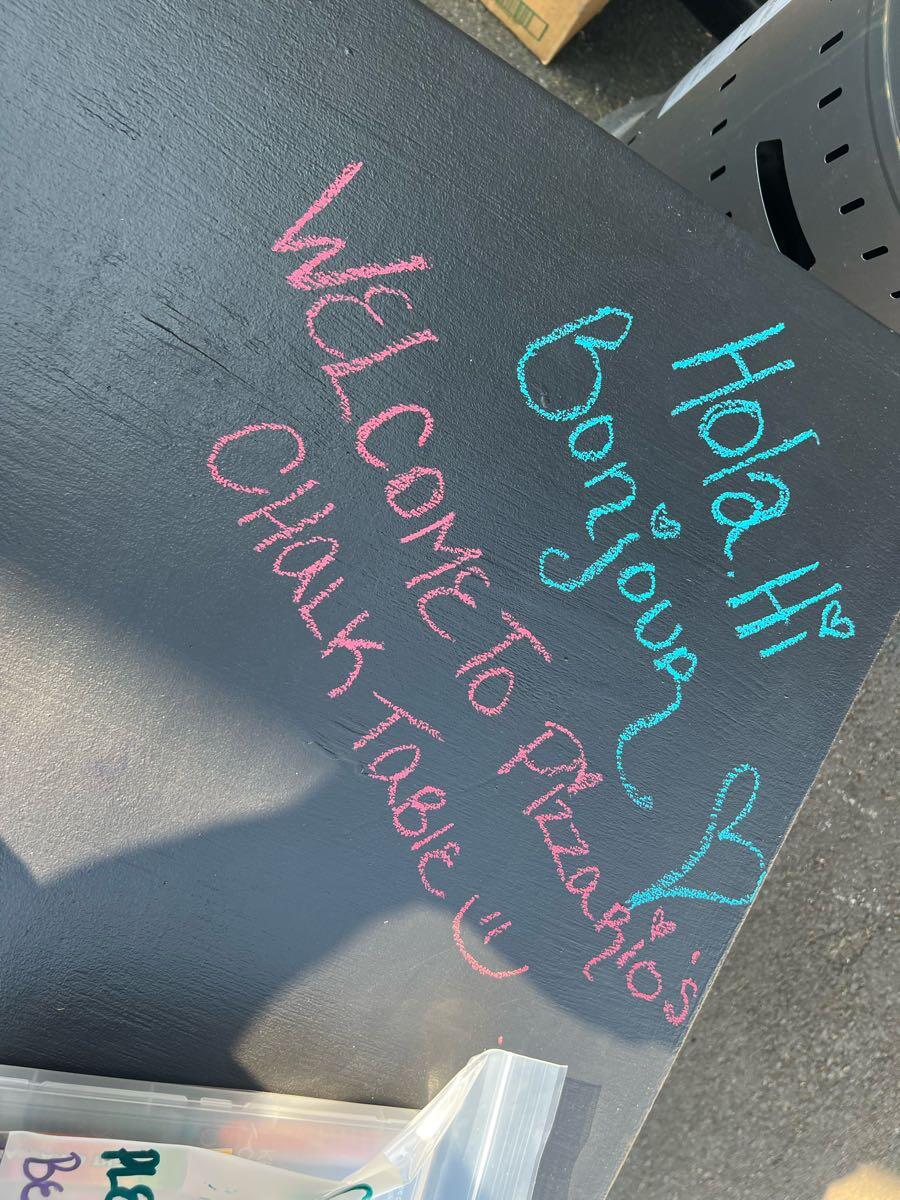 Hola. Hi
Bonjour
WELCOME TO Pizzario's
CHaLK TaBlE